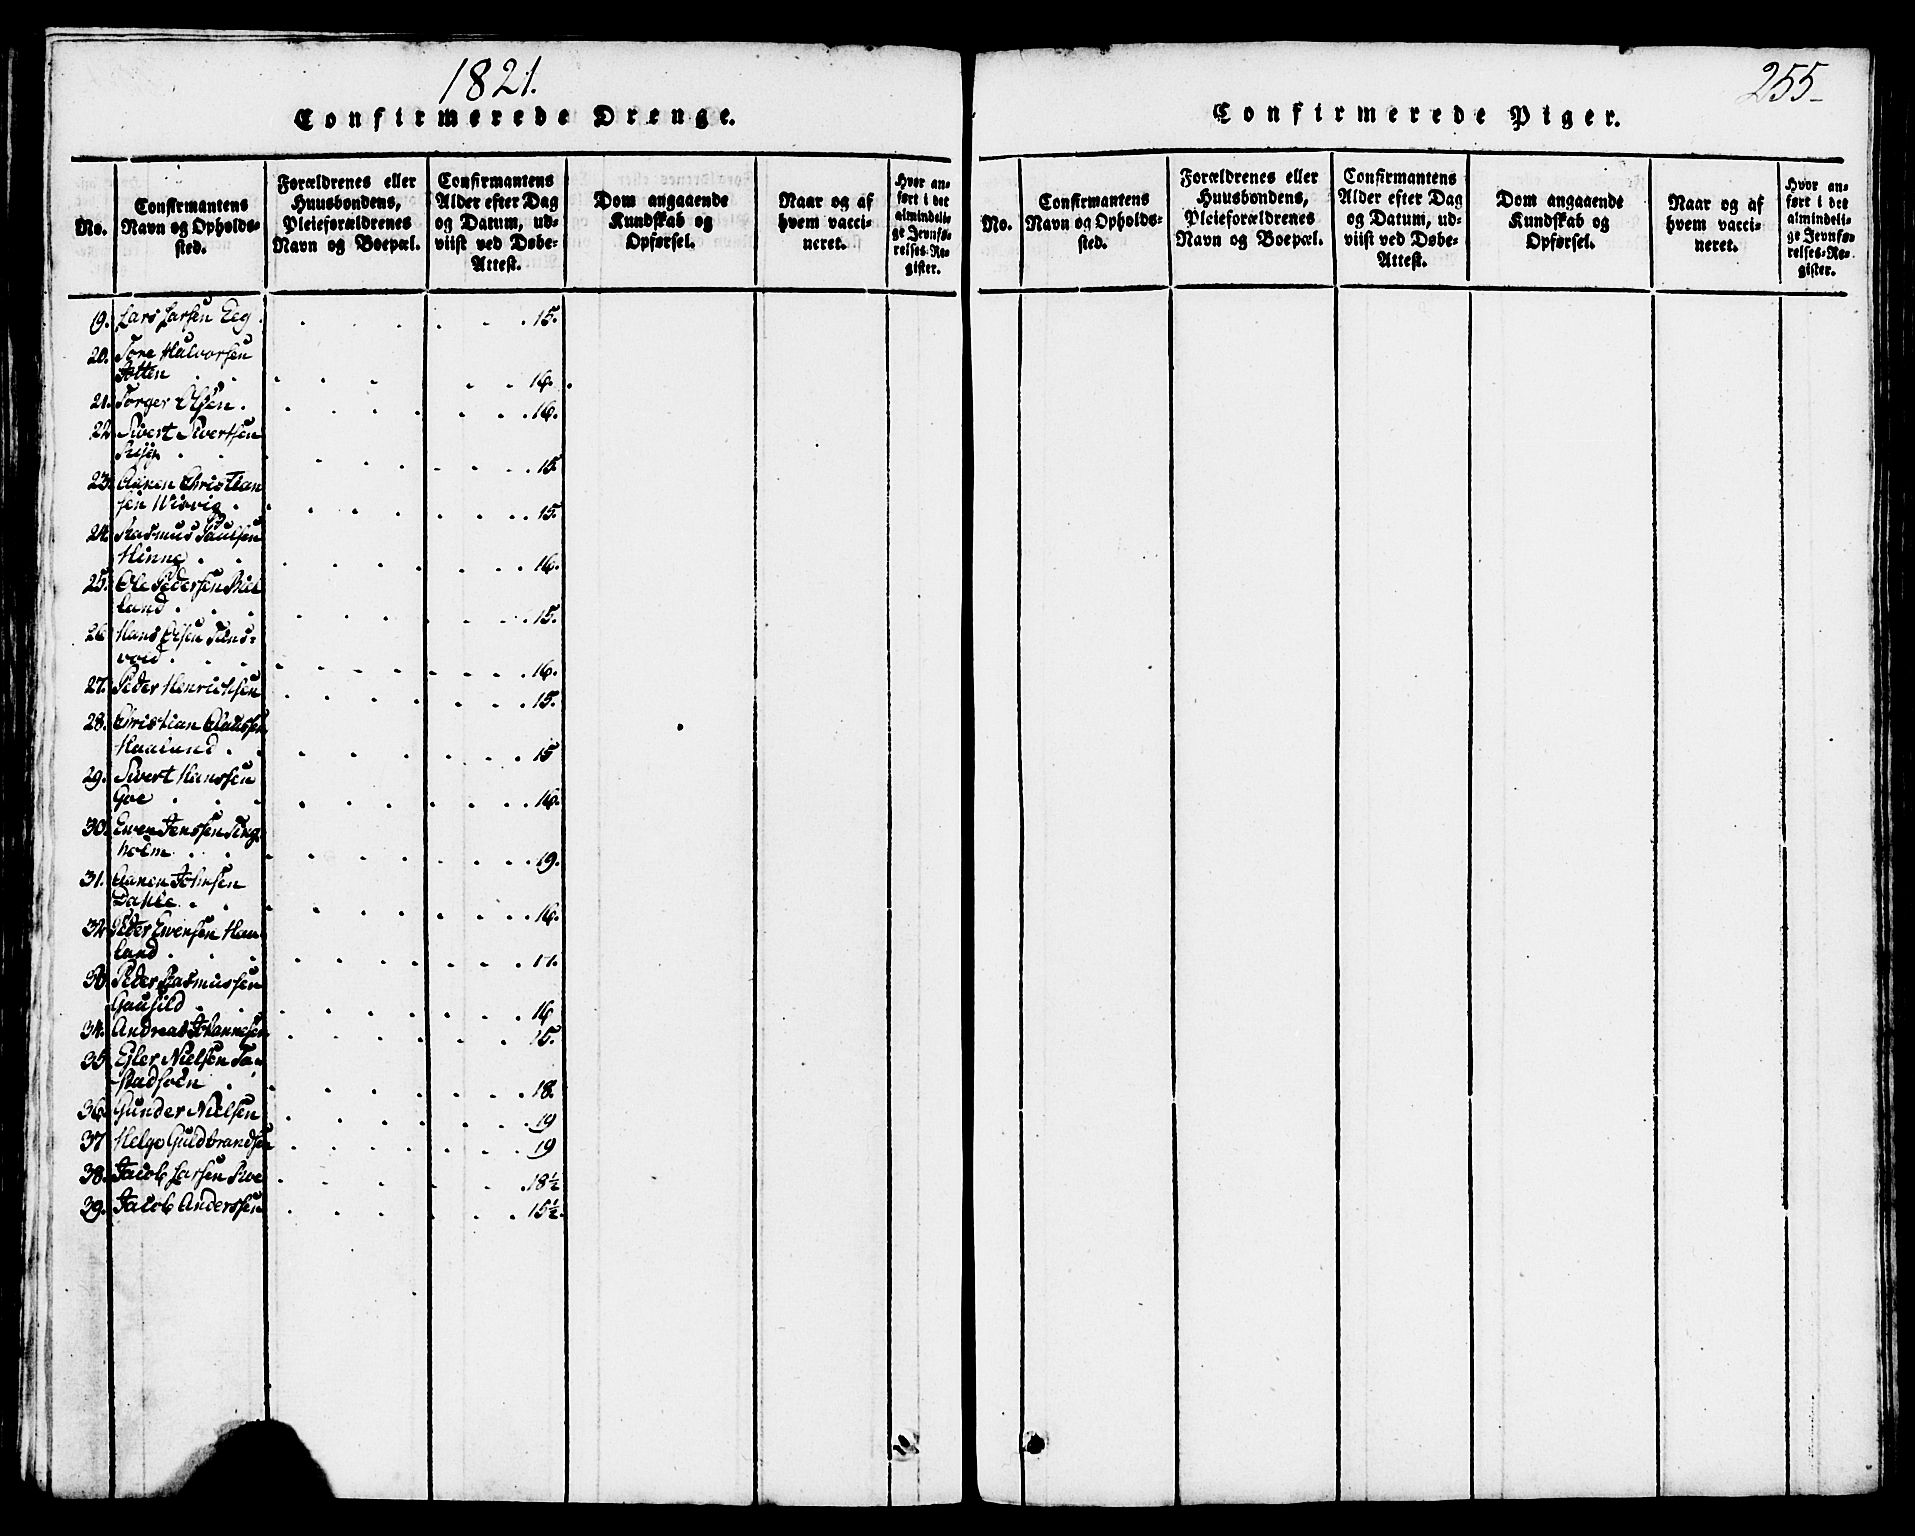 1821.
Confirmerede Drenge.
No.
Confirmantens
Navn og Opholds-
sted.
Forældrenes eller
Huusbondens,
Pleieforældrenes
Navn og Boepæl.
Confirmantens
Alder efter Dag
og Datum, ud-
viist ved Døbe-
Attest.
Dom angaaende
Kundskab og
Opførsel.
Naar og af
hvem vacci-
neret.
Hvor an-
ført i det
almindeli-
ge Jevnfø-
relses-Re-
gister.
19. Lars Larsen Eeg . . . . . . 15.
20. Tore Halvorsen
. . . . . . 16.
21. Torger Olsen . . . . . . 16.
22. Sivert Sivertsen
. . . . . . 15.
23. Aanen Christian
sen Wisvig . . . . . . 15.
24. Rasmus Paulsen
Hinna . . . . . . 16.
25. Ole Pedersen
land . . . . . . 15.
26. Hans Olsen Suns-
vold . . . . . . 16.
27. Peder Henrichsen . . . . . . 15.
28. Christian Claussen
Haaland . . . . . . 15
29. Sivert Hanssen
Goe . . . . . . 16.
30. Even Jenssen Ting-
holm . . . . . . 19.
31. Aanen Johnsen
Dahle . . . . . . 16.
32. Peder Evensen Haa-
land . . . . . . 17.
33. Peder Rasmussen
Gausild . . . . . . 16
34. Andreas Johannesen . . . . . . 15.
35. Ejler Nielsen Ta-
stadsoen . . . . . . 18.
36. Gunder Nielsen . . . . . . 19
37. Helge Guldbrandsen . . . . . . 19
38. Jacob Larsen Roe . . . . . . 18½
39. Jacob Anderssen . . . . . . 15½.
255-
Confirmerede Piger.
No.
Confirmantens
Navn og Opholds-
sted.
Forældrenes eller
Huusbondens,
Pleieforældrenes
Navn og Boepæl.
Confirmantens
Alder efter Dag
og Datum, ud-
viist ved Døbe-
Attest.
Dom angaaende
Kundskab og
Opførsel.
Naar og af
hvem vacci-
neret.
Hvor an-
ført i det
almindeli-
ge Jevnfø-
relses-Re-
gister.